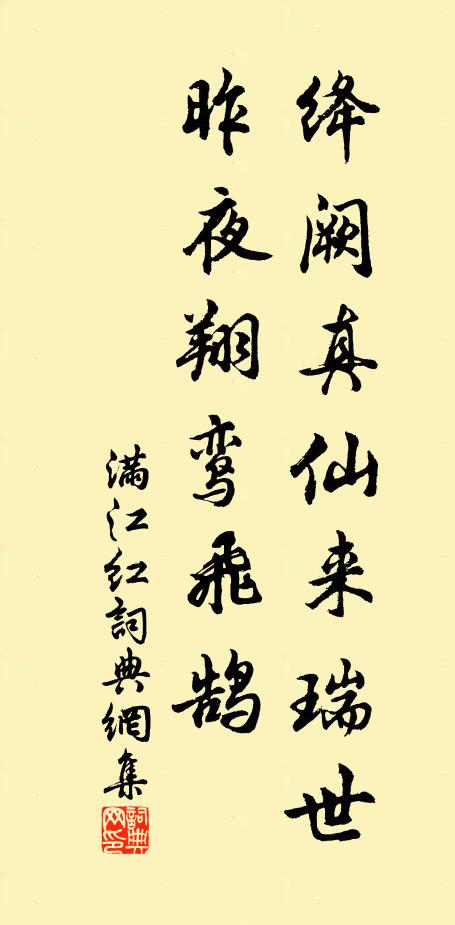 绛阙真仙来瑞世
昨夜翔鸾飞鹄
满江红词典網集
詞典网印